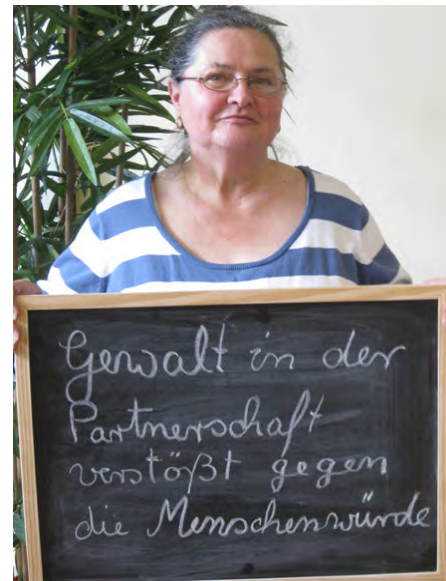 Gewalt in der
Partnerschaft
verstößt gegen
die Menschenwürde